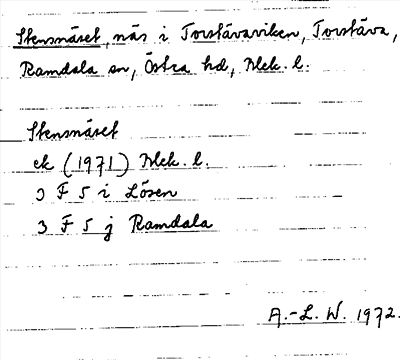 Stensnäset, näs i Torstävaviken, Torstäva,
Ramdala sn, Östra hd, Blek. l.
Stensnäset
ek (1971) Blek. l.
3 F 5 i Lösen
3 F 5 j Ramdala
A.-L. W. 1972.